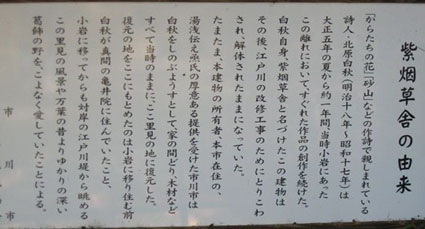 紫烟草舎の由来
「からたちの花」「砂山」などの作詩で親しまれている
詩人・北原白秋(明治十八年〜昭和十七年)は
大正五年の夏から約一年間、当時小岩にあった
この離れにおいてすぐれた作品の創作を続けた。
白秋自身、紫烟草舎と名づけたこの建物は
その後、江戸川の改修工事のためにとりこわ
され、解体されたままになっていた。
たまたま、本建物の所有者、本市在住の、
湯浅伝之烝氏の厚意ある提供を受けた市川市は
白秋をしのぶようすがとして、家の間どり、木材など
すべて当時のままに、ここ里見の地に復元した。
復元の地をここにもとめたのは小岩に移り住む前
白秋が真間の亀井院に住んでいたこと、
小岩に移ってからも対岸の江戸川堤から眺める
この里見の風景や万葉の昔よりゆかりの深い
葛飾の野を、こよなく愛していたことによる。
市川市